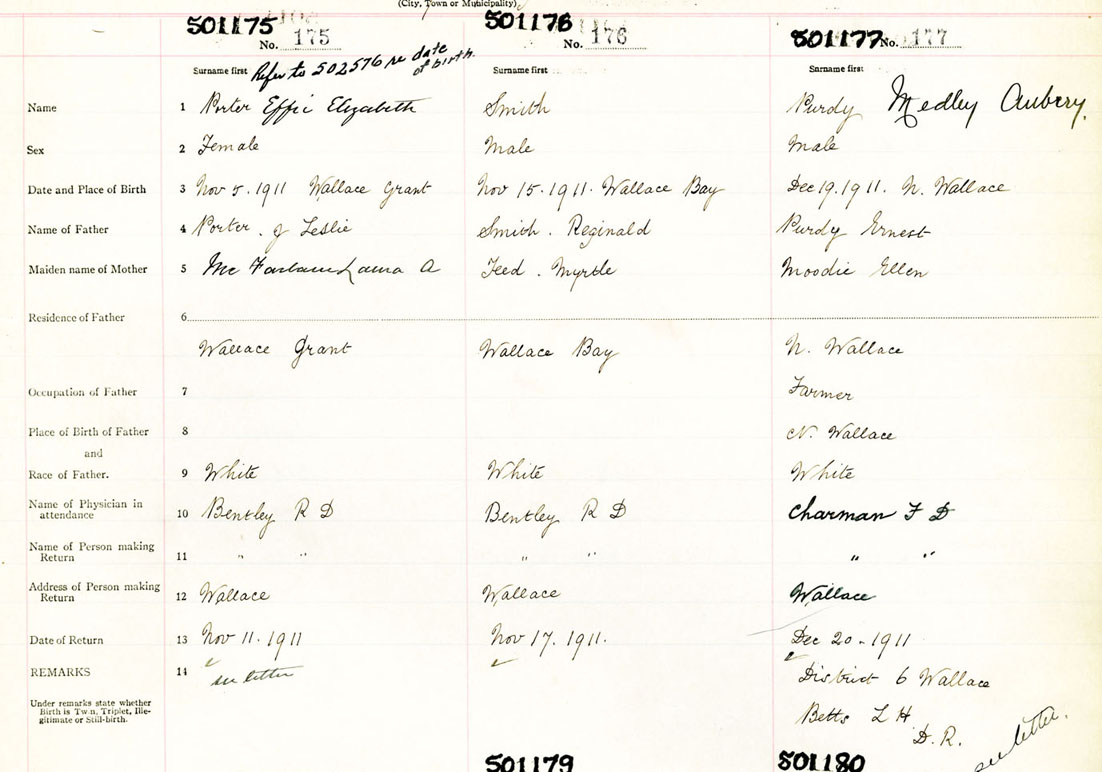 (City, Town or Municipality)
501175 501176 501177
No. 175 No. 176 No. 177
Surname first Refer to 502576 re date of birth. Surname first Surname first
Name 1 Porter Effie Elizabeth Smith Purdy Medley Aubery.
Sex 2 Female Male Male
Date and Place of Birth 3 Nov 5. 1911 Wallace Grant Nov 15. 1911. Wallace Bay Dec 19. 1911. N. Wallace
Name of Father 4 Porter. J Leslie Smith. Reginald Purdy Ernest
Maiden name of Mother 5 Mc Laura A Teed. Myrtle Moodie Ellen
Residence of Father 6
Wallace Grant Wallace Bay N. Wallace
Occupation of Father 7 Farmer
Place of Birth of Father 8 N. Wallace
and
Race of Father. 9 White White White
Name of Physician in
attendance 10 Bentley R D Bentley R D Charman F D
Name of Person making
Return 11 " " " " " "
Address of Person making
Return 12 Wallace Wallace Wallace
Date of Return 13 Nov 11. 1911 Nov 17. 1911. Dec 20 - 1911
REMARKS 14 see letter District 6 Wallace
Under remarks state whether
Birth is Twin, Triplet, Ille-
gitimate or Still-birth.
Betts L H
D. R.
see letter.
501179 501180